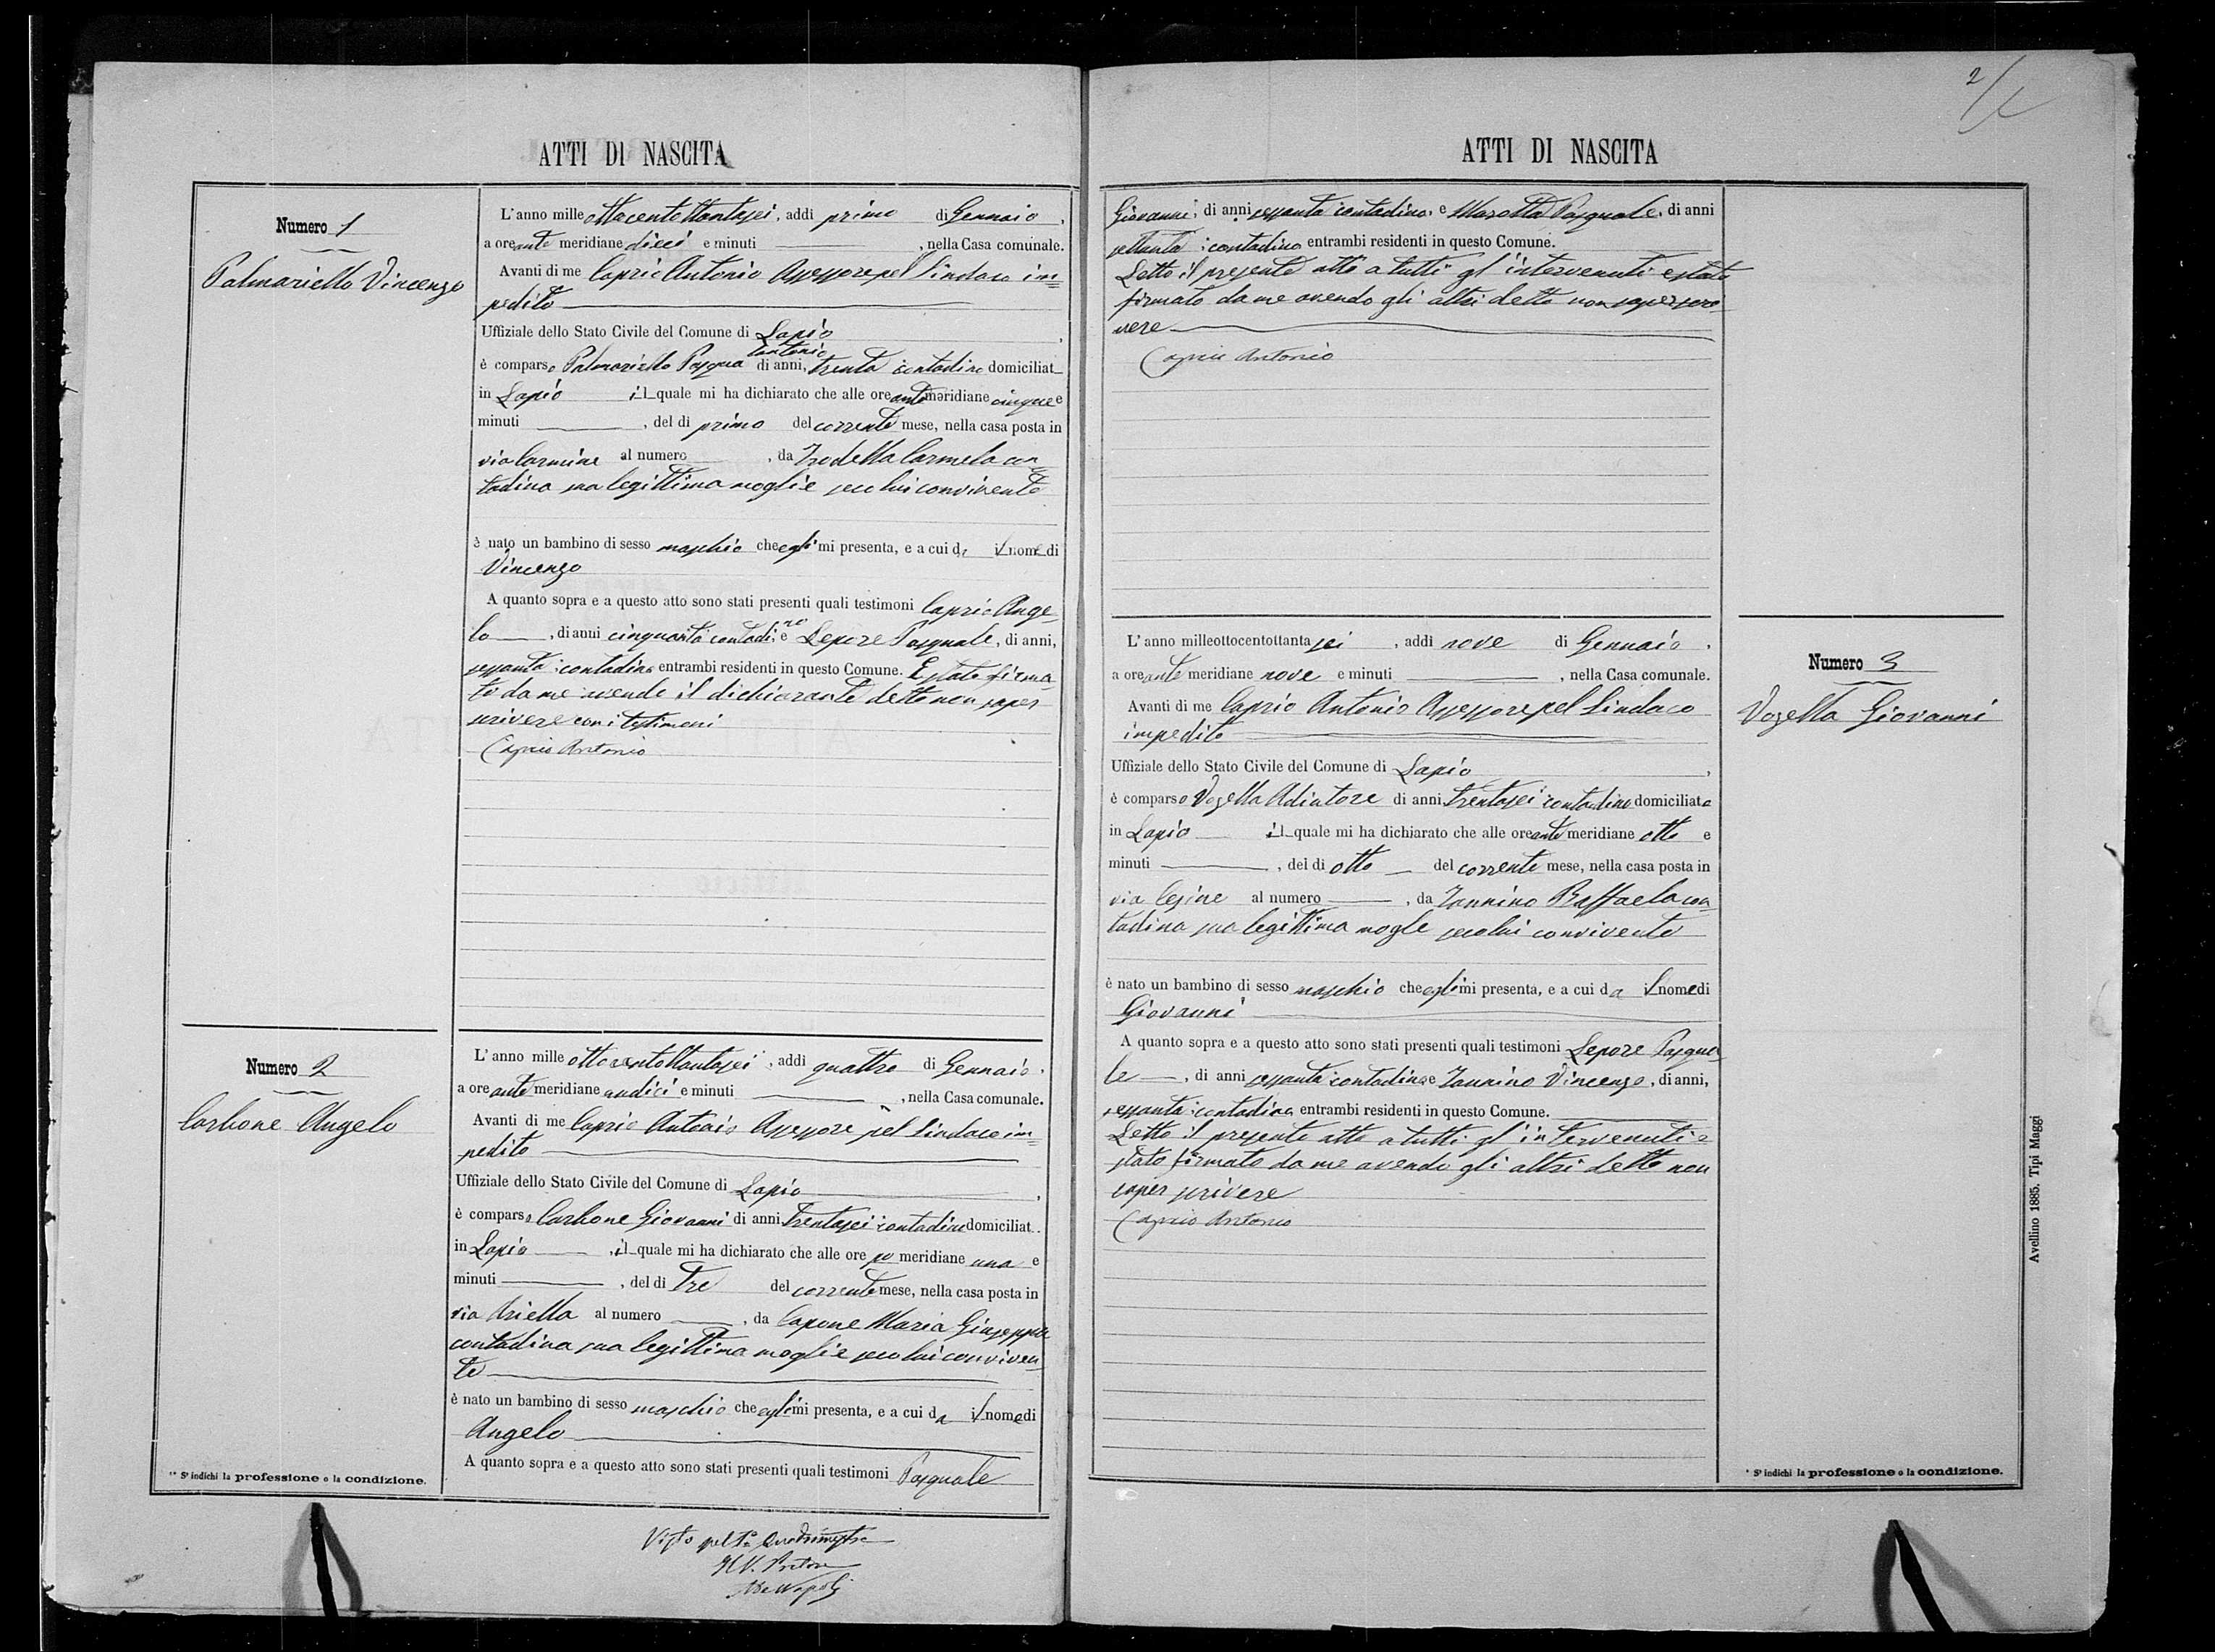 ATTI DI NASCITA
Numero 1
Palmariello Vincenzo
L'anno mille ottocentottantasei, addì primo di Gennaio,
a ore ante meridiane dieci e minuti , nella Casa comunale.
Avanti di me Caprio Antonio Assessore pel Sindaco im=
pedito
Uffiziale dello Stato Civile del Comune di Lapio
è comparso Palmariello Pasqua Antonio di anni, trenta contadino domiciliat
in Lapio il quale mi ha dichiarato che alle ore ante meridiane cinque e
minuti , del di primo del corrente mese, nella casa posta in
via Carmine al numero , da Carmela con
tadina sua legittima moglie seco lui convivente
è nato un bambino di sesso maschio che egli mi presenta, e a cui da il nome di
Vincenzo
A quanto sopra e a questo atto sono stati presenti quali testimoni Caprio Ange
lo , di anni cinquanta contadino e Lepore Pasquale, di anni,
sessanta contadino entrambi residenti in questo Comune. E stato firma
to da me avendo il dichiarante detto non saper
scrivere con i testimoni
Caprio Antonio
Numero 2
Carbone Angelo
L'anno mille ottocentottantasei, addì quattro di Gennaio,
a ore ante meridiane undici e minuti , nella Casa comunale.
Avanti di me Caprio Antonio Assessore pel Sindaco im=
pedito
Uffiziale dello Stato Civile del Comune di Lapio
è comparso Carbone Giovanni di anni trentasei contadino domiciliat
in Lapio , il quale mi ha dichiarato che alle ore po meridiane una e
minuti , del di tre del corrente mese, nella casa posta in
via Ariella al numero , da Capone Maria Giuseppa
contadina sua legittima moglie seco lui conviven
te
è nato un bambino di sesso maschio che egli mi presenta, e a cui da il nome di
Angelo
A quanto sopra e a questo atto sono stati presenti quali testimoni Pasquale
* Si indichi la professione o la condizione.
Visto pel 1° Quadrimestre
Il V. Pretore
2
ATTI DI NASCITA
Giovanni, di anni sessanta contadino, e Marotta Pasquale, di anni
settanta contadino entrambi residenti in questo Comune.
Letto il presente atto a tutti gl'intervenuti e stato
firmato da me avendo gli altri detto non saper scri
vere
Caprio Antonio
L'anno milleottocentottanta sei, addì nove di Gennaio,
a ore ante meridiane nove e minuti , nella Casa comunale.
Avanti di me Caprio Antonio Assessore pel Sindaco
impedito
Uffiziale dello Stato Civile del Comune di Lapio,
è comparso Vozella Adiutore di anni trentasei contadino domiciliato
in Lapio il quale mi ha dichiarato che alle ore ante meridiane otto e
minuti , del di otto del corrente mese, nella casa posta in
via Cesine al numero , da Iannino Raffaela con
tadina sua legittima mogle seco lui convivente
è nato un bambino di sesso maschio che egli mi presenta, e a cui da il nome di
Giovanni
A quanto sopra e a questo atto sono stati presenti quali testimoni Lepore Pasqua
le , di anni sessanta contadino e Iannino Vincenzo, di anni,
sessanta contadino entrambi residenti in questo Comune.
Letto il presente atto a tutti gl'intervenuti e
stato firmato da me avendo gli altri detto non
saper scrivere
Caprio Antonio
Numero 3
Vozella Giovanni
* Si indichi la professione o la condizione.
Avellino 1885. Tipi Maggi